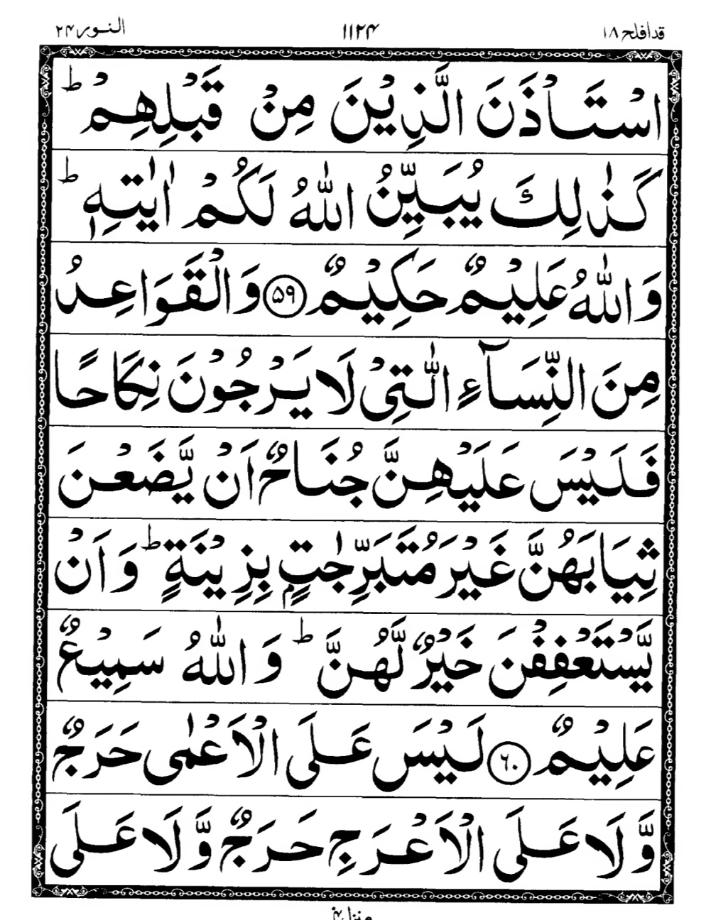 قدافلح ۱۸ ۱۱۲۴ النور ۲۴
اسْتَاْذَنَ الَّذِيْنَ مِنْ قَبْلِهِمْ ؕ
كَذٰلِكَ يُبَيِّنُ اللّٰهُ لَكُمْ اٰيٰتِهٖ ؕ
وَاللّٰهُ عَلِيْمٌ حَكِيْمٌ ﴿۵۹﴾ وَالْقَوَاعِدُ
مِنَ النِّسَآءِ الّٰتِىْ لَا يَرْجُوْنَ نِكَاحًا
فَلَيْسَ عَلَيْهِنَّ جُنَاحٌ اَنْ يَّضَعْنَ
ثِيَابَهُنَّ غَيْرَ مُتَبَرِّجٰتٍۭ بِزِيْنَةٍ ؕ وَاَنْ
يَّسْتَعْفِفْنَ خَيْرٌ لَّهُنَّ ؕ وَاللّٰهُ سَمِيْعٌ
عَلِيْمٌ ﴿۶۰﴾ لَيْسَ عَلَى الْاَعْمٰى حَرَجٌ
وَّلَا عَلَى الْاَعْرَجِ حَرَجٌ وَّلَا عَلَى
منزل ۴